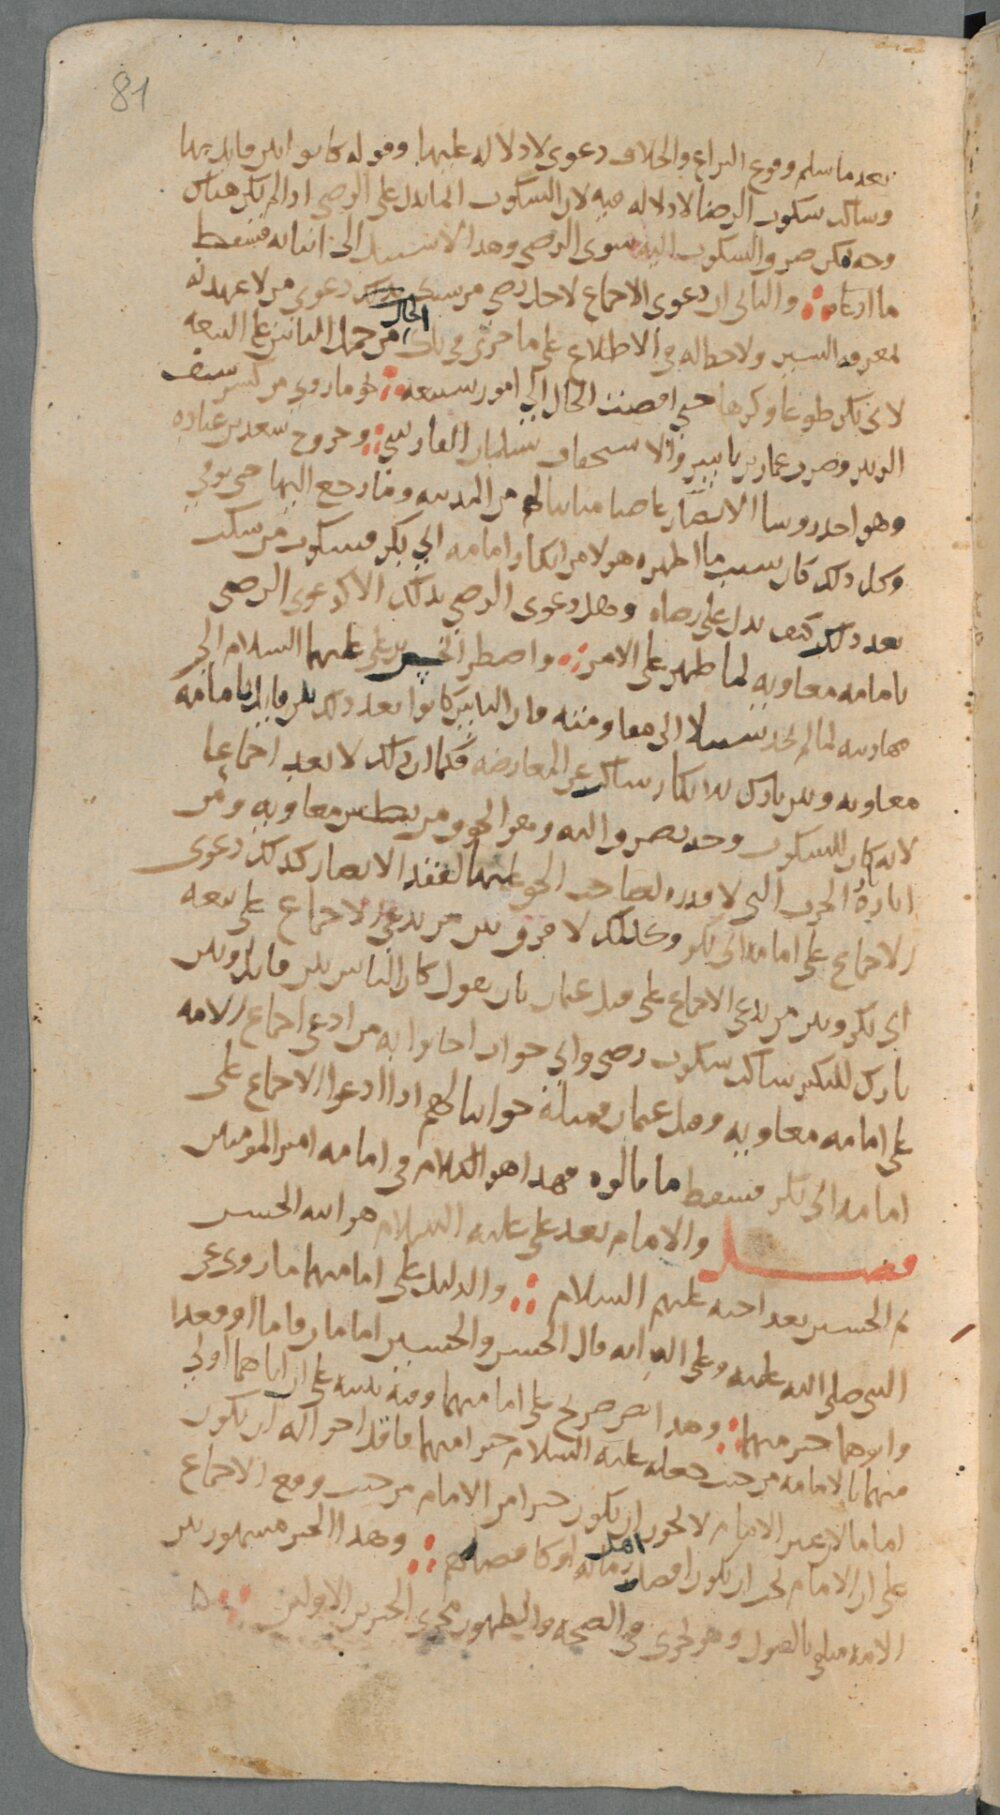 81
بعد ما سلم وقوع النزاع والخلاف دعوى لا دلالة عليها وقوله كانوا بين قايل بها
وساكت سكوت الرضا لا دلالة فيه لان السكوت انما يدل على الرضى اذا لم يكن هناك
وجه يمكن صرف السكوت اليه سوى الرضى وهذا لا سبيل الى اثباته فسقط
ما ادعاه والثاني ان دعوى الاجماع لاجل رضى من سكت دعوى من لا عهد له
بمعرفة السير ولا حظ له في الاطلاع على ما جرى في تلك الحال من حمل الناس على البيعة
لابي بكر طوعا وكرها حتى افضت الحال الى امور شنيعة نحو ما روي من كسر سيف
الزبير وضرب عمار بن ياسر والاستخفاف بسلمان الفارسي وخروج سعد بن عبادة
وهو احد روسا الانصار غاضبا مباينا لهم من المدينة وما رجع اليها حتى توفي
وكل ذلك كان سبب ما اظهره هولا من انكار امامة ابي بكر فسكوت من سكت
بعد ذلك كيف يدل على رضاه وهل دعوى الرضى بذلك الا كدعوى الرضى
بامامة معاوية لما ظهر على الامر واضطر الحسن بن علي عليهما السلام الى
مهادنته لما لم يجد سبيلا الى مقاومته فان الناس كانوا بعد ذلك بين قايل بامامة
معاوية وبين تارك للانكار ساكت عن المعارضة فكما ان ذلك لا يعد اجماعا
لانه كان للسكوت وجه يصرف اليه وهو الخوف من بطش معاوية ومن
اثارة الحرب التي لا قدرة لصاحب الحق عليها لفقد الانصار كذلك دعوى
الاجماع على امامة ابي بكر وكذلك لا فرق بين من يدعي الاجماع على بيعة
ابي بكر وبين من يدعي الاجماع على قتل عثمان بان يقول كان الناس بين قاتل وبين
تارك للنكير ساكت سكوت رضى واي جواب اجابوا به من ادعى اجماع الامة
على امامة معاوية وقتل عثمان فمثله جوابنا لهم اذا ادعوا الاجماع على
امامة ابي بكر فسقط ما قالوه فهذا هو الكلام في امامة امير المومنين
فصل والامام بعد علي عليه السلام هو ابنه الحسن
ثم الحسين بعد اخيه عليهم السلام والدليل على امامتهما ما روي عن
النبي صلى الله عليه وعلى اله انه قال الحسن والحسين امامان قاما او قعدا
وابوهما خير منهما وهذا نص صريح على امامتهما وفيه تنبيه على ان اباهما اولى
منهما بالامامة من حيث جعله عليه السلام خيرا منهما فاقل احواله ان يكون
اماما لان غير الامام لا يجوز ان يكون خيرا من الامام من حيث وقع الاجماع
على ان الامام يجب ان يكون افضل اهل زمانه او كافضلهم وهذا الخبر مشهور بين
الامة متلقى بالقبول وهو يجري في الصحة والظهور مجرى الخبرين الاولين